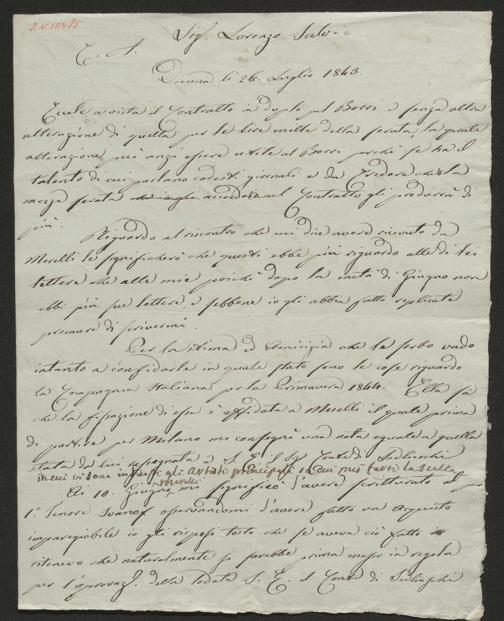 Sig. Lorenzo Salvi =
C. A.
Vienna li 26. Luglio 1843.
Eccole a vista il Contratto in duplo pel Bocci e senza altra
alterazione di quella per le lire mille della serata, la quale
alterazione può anzi essere utile al Bocci perché se ha il
talento di cui parlano codesti giornali è da credere che la
mezza serata che io gli accordava nel Contratto gli produrrà di
più.
Riguardo al riscontro che mi dice avere ricevuto da
Merelli le significherò che questi ebbe più riguardo alle di lei
lettere che alle mie poiché dopo la metà di Giugno non
ebbi più sue lettere e sebbene io gli abbia fatto replicate
premure di scrivermi.
Per la stima ed Amicizia che le serbo vado
intanto a confidarle in quale stato sono le cose riguardo
la Compagnia Italiana per la Primavera 1844. Ella sa
che la fissazione di essa è affidata a Merelli il quale prima
di partire per Milano mi consegnò una nota eguale a quella
stata da lui rassegnata a S. E. il Sig. Conte di
in cui vi sono gli Artisti principali su cui farsi la scelta
Merelli
Li 10. Giugno mi significò d'avere scritturato per
1.º Tenore Ivanoff osservandomi d'avere fatto un acquisto
impareggiabile io gli risposi tosto che se aveva ciò fatto
ritenevo che naturalmente si sarebbe prima messo in regola
per l'approvaz. della lodata S. E. il Conte di